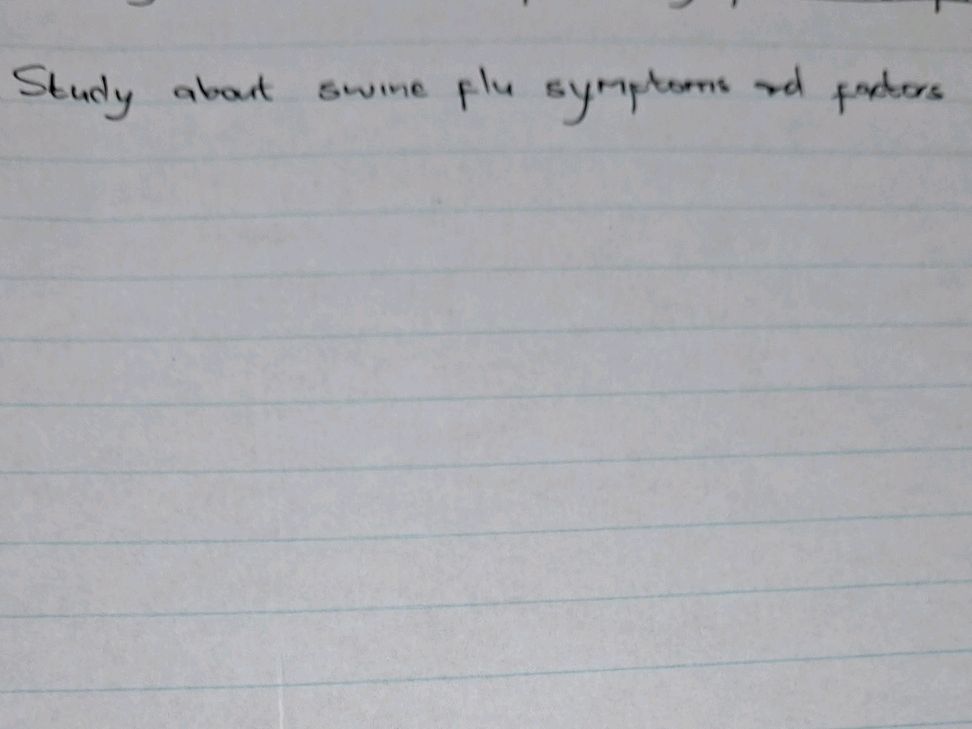 Study about swine flu symptoms nd factors